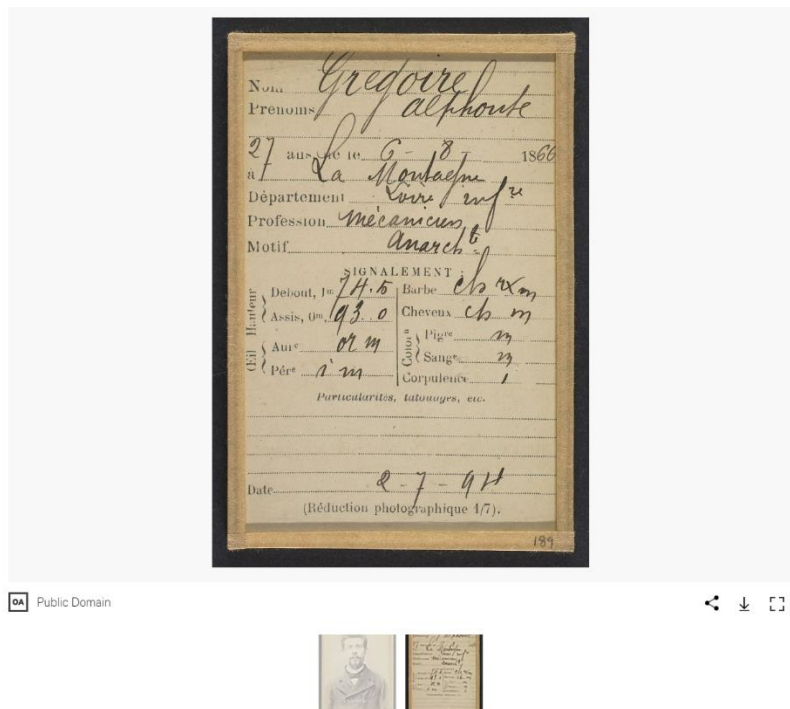 Nom Gregoire
Prénoms alphonse
27 ans, né le 6 - 8 - 1866
à La Montagne
Département Loire infre
Profession Mécanicien
Motif Anarchte
SIGNALEMENT :
Hauteur
Debout, 1m 74.5
Assis, 0m, 93.0
Œil
Aure or m
Pére i m
Barbe ch rx m
Cheveux ch m
Color n
Pigre m
Sange m
Corpulence /
Particularités, tatouages, etc.
Date 2 - 7 - 94
(Réduction photographique 1/7).
189
OA Public Domain